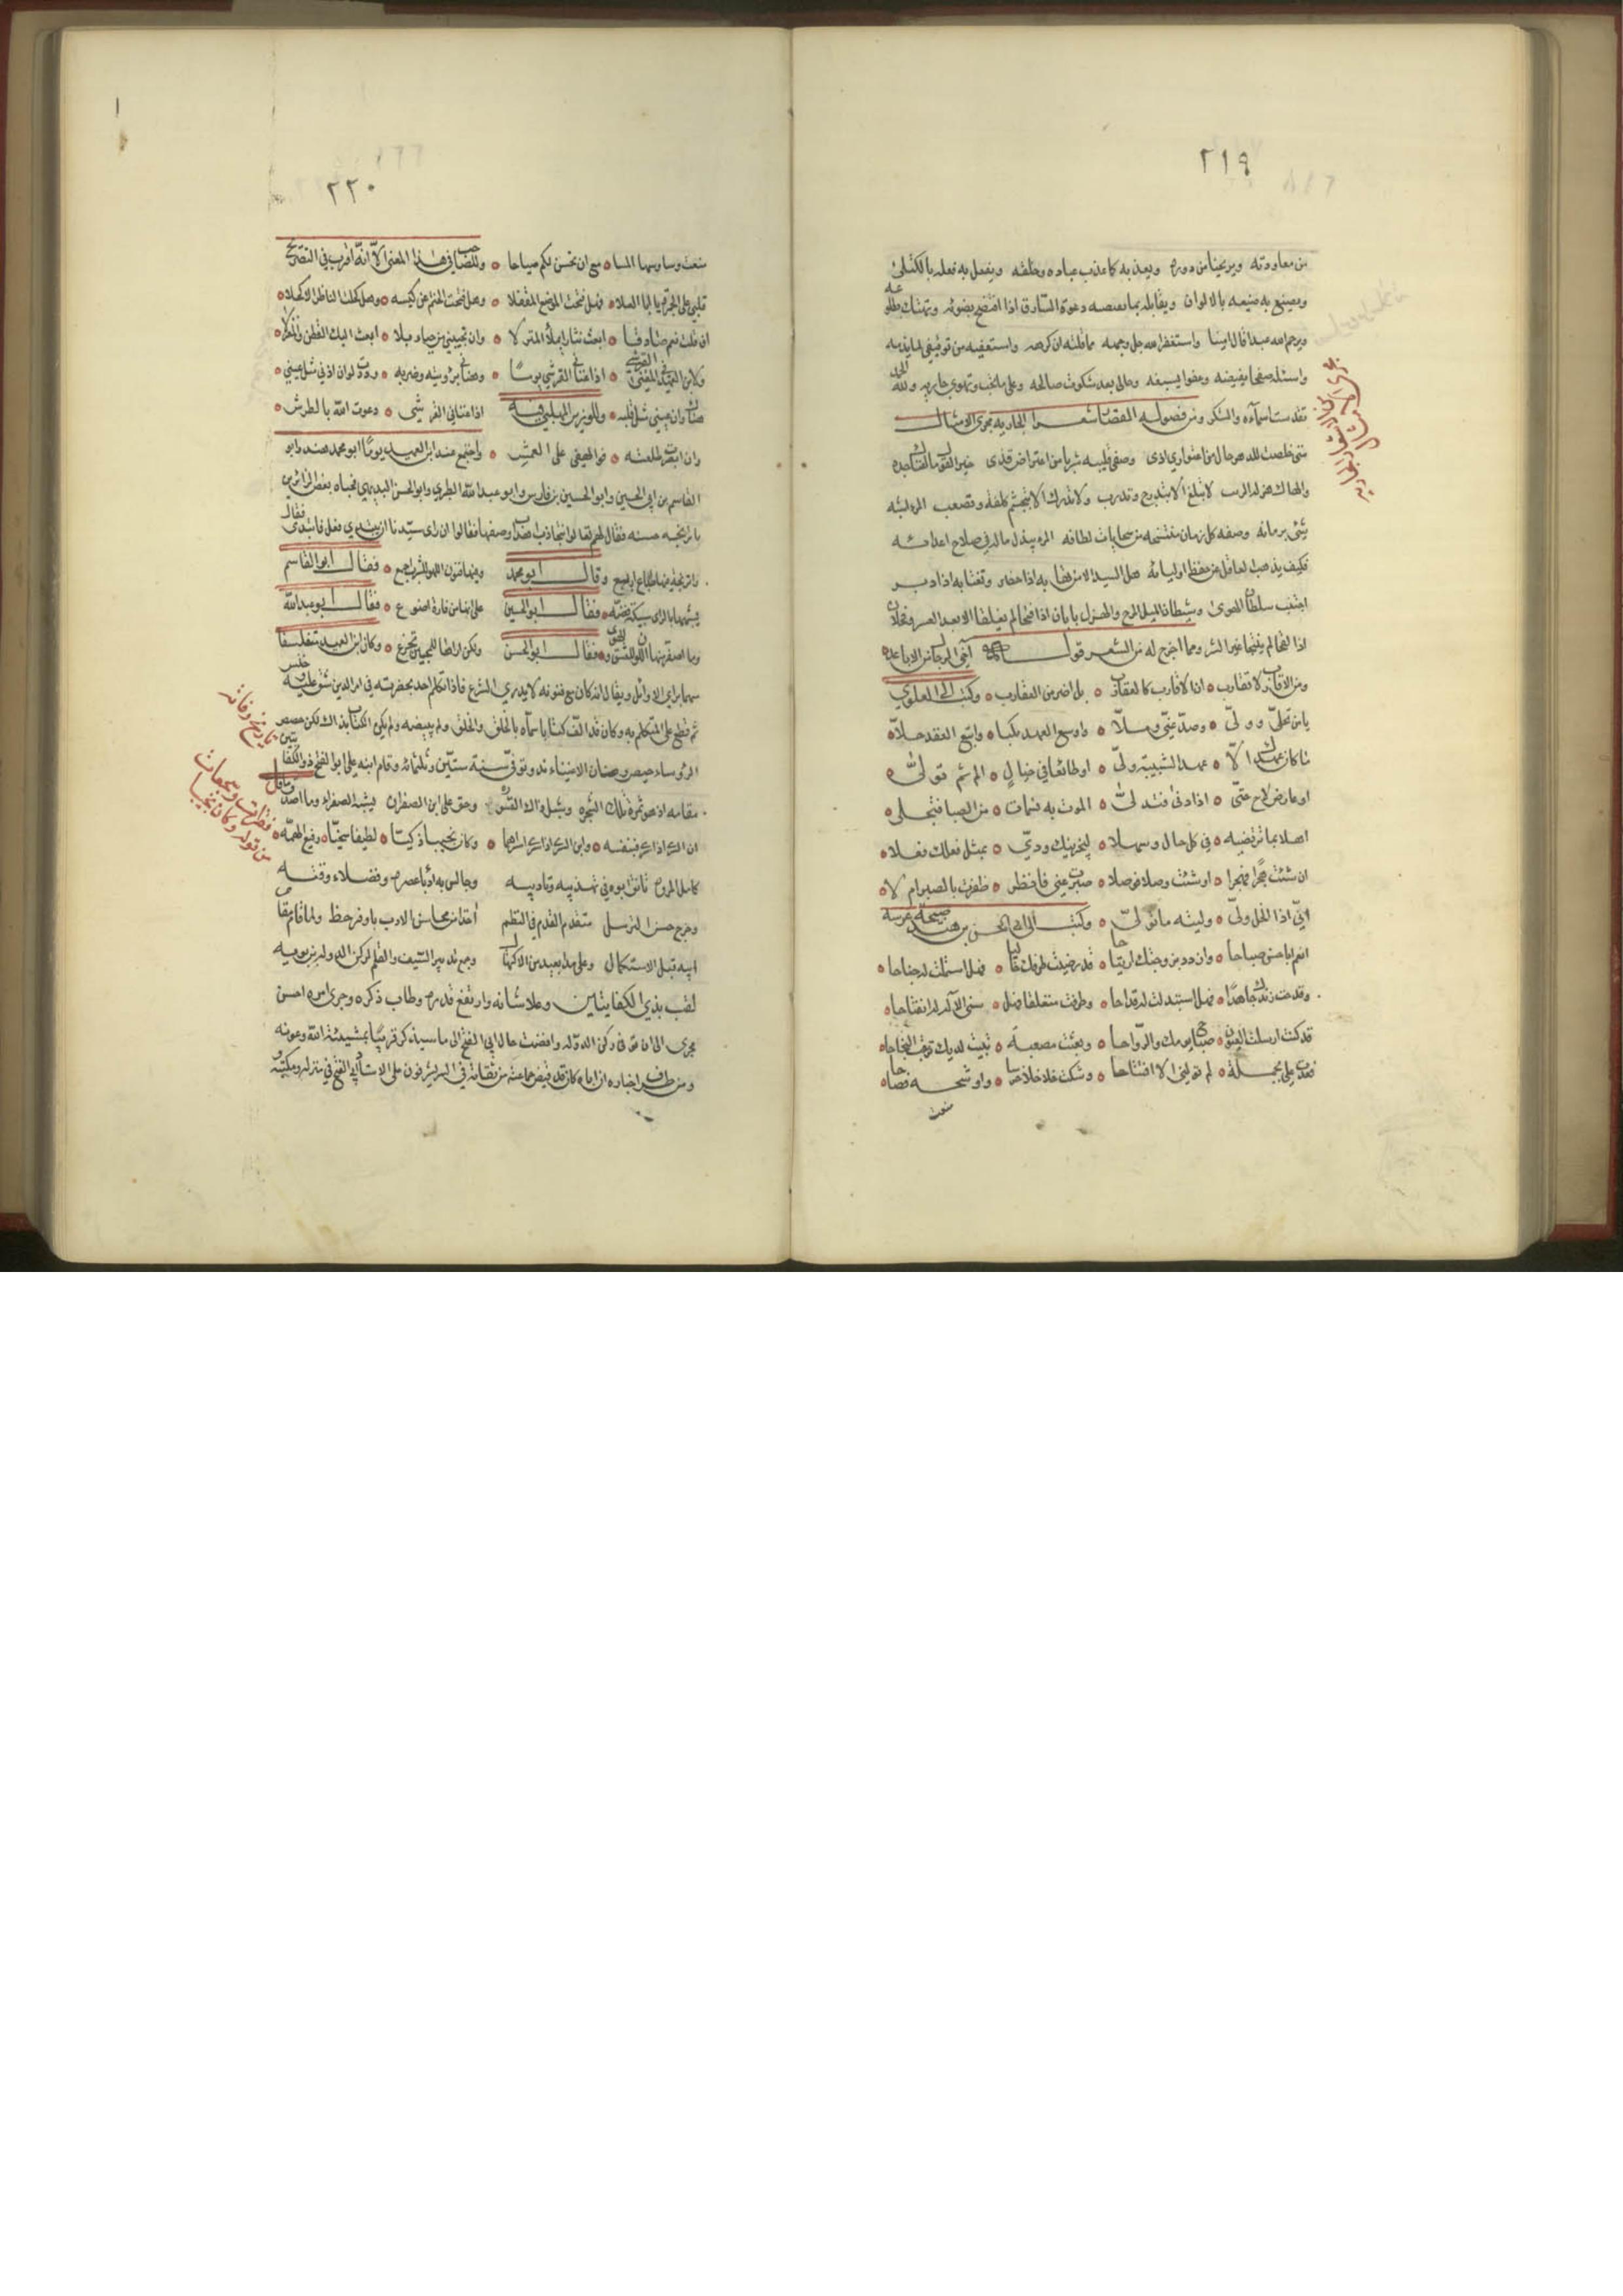 ٢١٩
من معاودته ويريحنا من دوره ويعذبه كما عذب عباده وخلقه ويفعل به فعله بالكتلى
ويصنع به صنيعه بالالوان ويقابله بما دعوة السارق اذا افتضح بضوئه
ويرحم الله عبدا قال امينا واستغفر الله جل وجهه مما قلته ان كرهه واستعفيه من توفيقي لما يذمه
واسئله صفحا يفيضه وعفوا يسيغه وحالي بعد شكوت صالحه وعلى ما تحب وتهوى جاريه ولله الحمد
تقدست اسماؤه والشكر ومن فصوله القصار الجاريه مجرى الامثال
متى خلصت للدهر حال من اعتوار اذى وصفى فيه شرب من اعتراض قذى خير القول ما اغناك جده
والهاك هزله الرتب لا تبلغ الا بتدرج وتدرب ولا تدرك الا بتجشم كلفه وتصعب المرء اشبه
شئ بزمانه وصفه كل زمان منتسخه من سجايا سلطانه المرء يبذل ماله في صلاح اعدائه
فكيف يذهب العاقل عن حفظ اوليائه هل السيد الا من تهابه اذا حضر وتغتابه اذا ادبر
اجتنب سلطان الهوى وشيطان الميل المزح والهزل بابان اذا فتحا لم يغلقا الا بعد العسر وفحلان
اذا القحا لم ينتجا غير الشر ومما اخرج له من الشعر قوله آخي الرجال من الاباعد
ومن الاقارب لا تقارب ٥ ان الاقارب كالعقارب ٥ بل اضر من العقارب ٥ وكتب الى العلوي
يا من تخلى وولى ٥ وصد عني وملا ٥ واوسع العهد نكثا ٥ واتبع العقد حلا ٥
ما كان عهدك الا ٥ عهد الشبيبة ولى ٥ او طائفا في خيال ٥ الم ثم تولى ٥
او عارض لاح حتى ٥ اذا دنى فتدلى ٥ الوت به نسمات ٥ من الصبا فتجلى ٥
اهلا بما ترتضيه ٥ في كل حال وسهلا ٥ ليجزينك ودي ٥ بمثل فعلك فعلا ٥
ان شئت هجرا فهجرا ٥ او شئت وصلا فوصلا ٥ صبرت عني فانظر ٥ ظفرت بالصبر ام لا ٥
اني اذا الخل ولى ٥ وليته ما تولى ٥ وكتب الى ابي الحسن بن هندو صبيحة عرسه
انعم ابا حسن صباحا ٥ وازدد بزوجتك ارتياحا ٥ قد رضيت طرفك خاليا ٥ فهل استملت له جناحا ٥
وقدحت زندك جاهدا ٥ فهل استبنت له اقتداحا ٥ وطرقت منغلقا فهل ٥ سنى الاله له انفتاحا ٥
قد كنت ارسلت العيون ٥ صباح يومك والرواحا ٥ وبعثت مصغية ٥ تبيت لديك ترتقب النجاحا ٥
فغدت علي بجملة ٥ لم تولني الا افتضاحا ٥ وشكت خلاخلا خرسا ٥ واوشحه فصاحا ٥
منعت
مجرى الامثال
٢٢٠
منعت وساوسها المسا ٥ مع ان تحس لكم صياحا ٥ وللصاحب في هذا المعنى الا انه اقرب في التصريح
قلبي على الجمرة يا ابا العلا ٥ فهل فتحت الموضع المقفلا ٥ وهل فضضت الختم عن كيسه ٥ وهل كحلت الناظر الاكحلا ٥
ان قلت نعم صادقا ٥ ابعث نثارا يملأ المنزلا ٥ وان تجبني من حياء بلا ٥ ابعث اليك القطن والمغزلا ٥
ولابن العميد في المغني القرشي ٥ اذا غنا في القرشي يوما ٥ وعناني برؤيته وضربه ٥ وددت لو ان اذني مثل عيني ٥
هناك وان عيني مثل قلبه ٥ وللوزير المهلبي فيه اذا غناني القرشي ٥ دعوت الله بالطرش ٥
وان ابصرت طلعته ٥ فوالهفي على العمش ٥ واجتمع عند ابن العميد يوما ابو محمد هندو وابو
القاسم بن ابي الحسين وابو الحسين بن فارس وابو عبد الله الطبري وابو الحسن البديهي فحياه بعض الزائرين
باترنجه حسنه فقال لهم تعالوا نتجاذب اهداب وصفها فقالوا ان راى سيدنا ان يبتدي فعل فابتدى فقال
واترنجة فيها طبايع اربع وقال ابو محمد وفيها فنون اللهو للشرب اجمع ٥ فقال ابو القاسم
يشبهها الرائي سبيكة فضة ٥ فقال ابو الحسين على انها من فارة اضوع ٥ فقال ابو عبد الله
وما اصفر منها اللون للعشق والهوى ٥ فقال ابو الحسن ولكن اراها للمحبين تجزع ٥ وكان ابن العميد متفلسفا
متهما براي الاوائل ويقال انه كان مع فنونه لا يدري الشرع فاذا تكلم احد بحضرته في امر الدين شق عليه وخنس
ثم قطع على المتكلم به وكان قد الف كتابا سماه بالخلق والخلق ولم يبيضه ولم يكن الكتاب بذاك ولكن حصص
الرؤساء خبيص وصنان الاغنياء ند وتوفي سنة ستين وثلثمائه وقام ابنه علي ابو الفتح ذو الكفايتين
مقامه اذ هو ثمرة تلك الشجره وشبل ذاك القسوره وحق على ابن الصقر ان يشبه الصقرا وما اصدق ما قيل
ان السري اذا سرى فبنفسه ٥ وابن السري اذا سرى اسراهما ٥ وكان نجيبا ذكيا ٥ لطيفا سخيا ٥ رفيع الهمه ٥
كامل المروه تانق ابوه في تهذيبه وتاديبه وجالس به ادباء عصره وفضلاء وقته
وخرج حسن الترسل متقدم القدم في النظم اخذا من محاسن الادب باوفر حظ ولما قام مقام
ابيه قبل الاستكمال وعلى مدى بعيد من الاكتهال وجمع تدبير السيف والقلم لركن الدوله بن بويه
لقب بذي الكفايتين وعلا شانه وارتفع قدره وطاب ذكره وجرى امره احسن
مجرى الى ان توفي ركن الدوله وافضت حال ابي الفتح الى ما سيذكر قريبا بمشيئة الله وعونه
ومن طرف اخباره ان اباه كان قد قيض جماعة من ثقاته في السر يشرفون على الاستاذ ابي الفتح في منزله ومكتبه
تاريخ وفاته